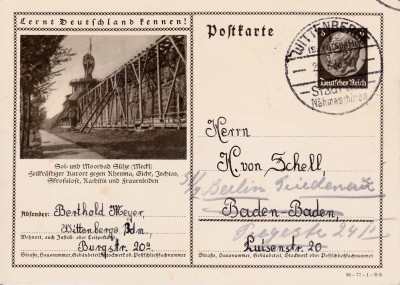 Lernt Deutschland kennen!
Postkarte
WITTENBERGE
Nähmaschinen
6
Deutsches Reich
Sol- und Moorbad Sülze (Meckl)
Heilkräftiger Kurort gegen Rheuma, Gicht, Ischias,
Skrofulose, Rachitis und Frauenleiden
Absender: Berthold Meyer,
Wittenberge Bdm.,
Wohnort, auch Zustell- oder Leitpostamt
Burgstr. 20a.
Straße, Hausnummer, Gebäudeteil, Stockwerk oder Postschließfachnummer
Herrn
H. von Schell,
Berlin Friedenau
Baden-Baden,
24 II
Luisenstr. 20
Straße, Hausnummer, Gebäudeteil, Stockwerk oder Postschließfachnummer